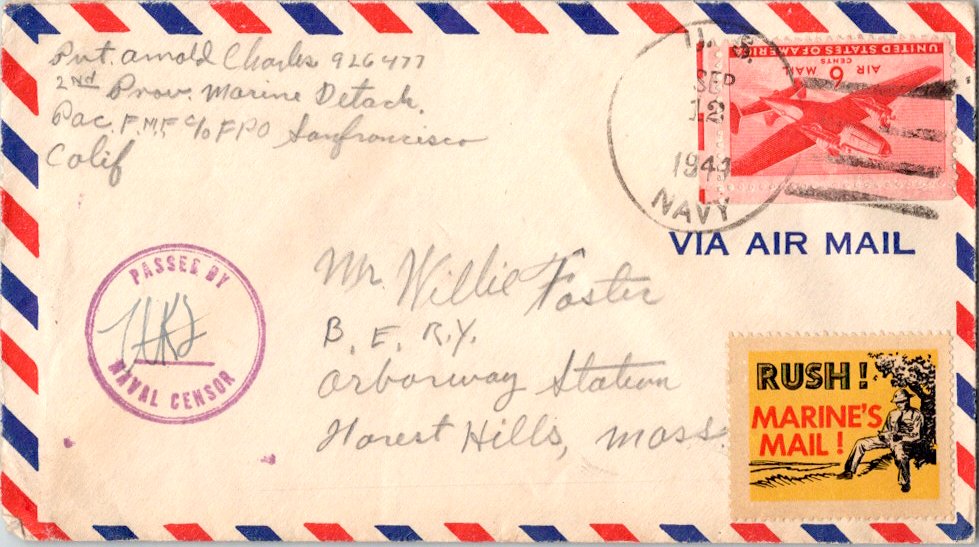 Pvt. Arnold Charles 926477
2nd Prov. Marine Detach.
Pac. F.M.F c/o FPO Sanfrancisco
Calif
U. S.
SEP
12
1944
NAVY
UNITED STATES OF AMERICA
6 CENTS
AIR MAIL
VIA AIR MAIL
PASSED BY
NAVAL CENSOR
Mr. Willie Foster
B. E. R.Y.
Arborway Station
Forest Hills, Mass.
RUSH!
MARINE'S
MAIL!